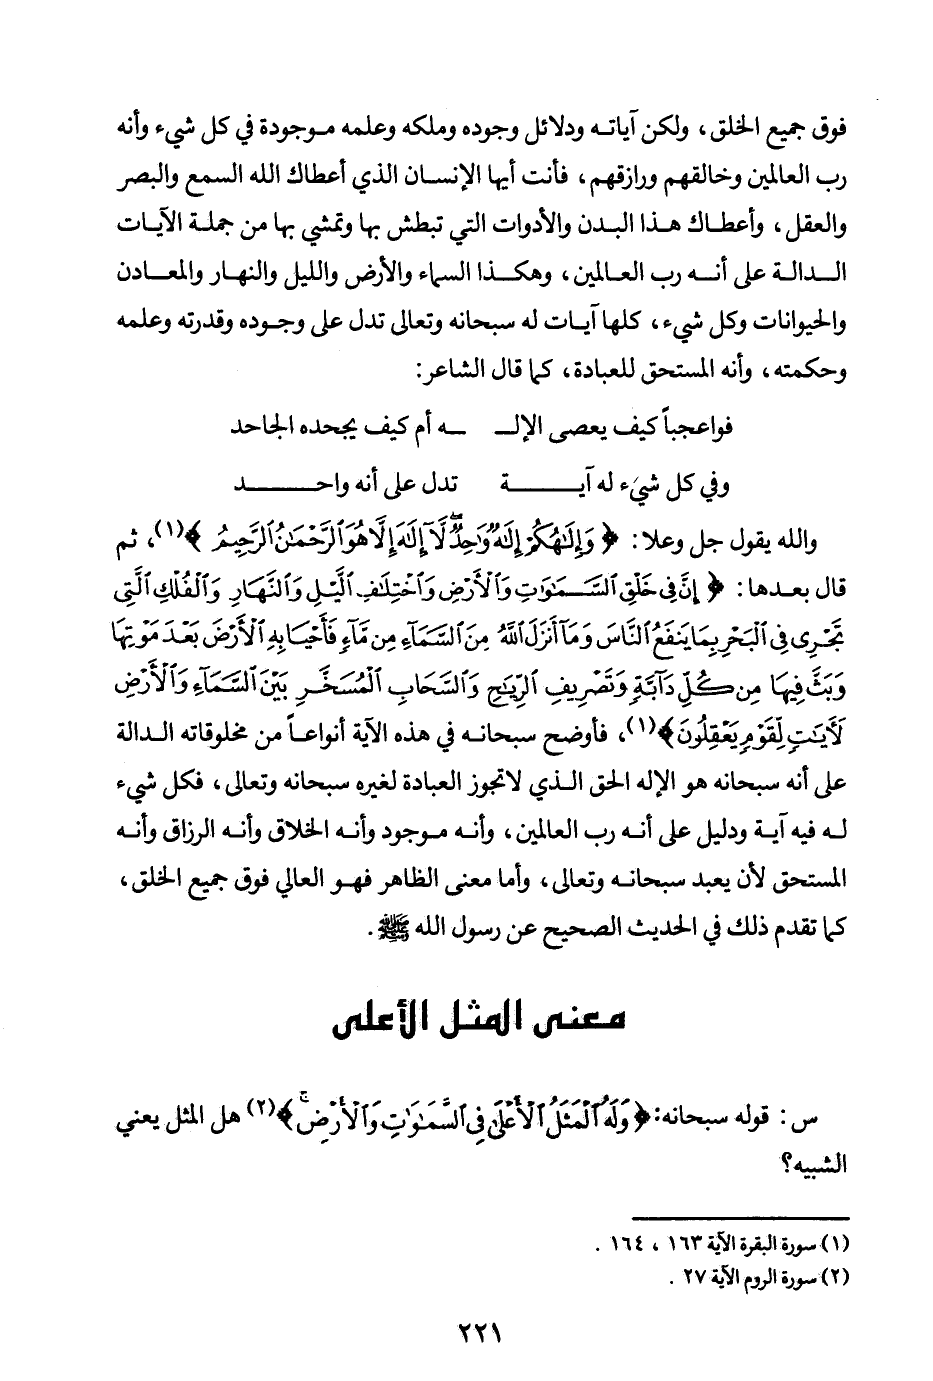 فوق جميع الخلق، ولكن آياته ودلائل وجوده وملكه وعلمه موجودة في كل شيء وأنه
رب العالمين وخالقهم ورازقهم، فأنت أيها الإنسان الذي أعطاك الله السمع والبصر
والعقل، وأعطاك هذا البدن والأدوات التي تبطش بها وتمشي بها من جملة الآيات
الدالة على أنه رب العالمين، وهكذا السماء والأرض والليل والنهار والمعادن
والحيوانات وكل شيء، كلها آيات له سبحانه وتعالى تدل على وجوده وقدرته وعلمه
وحكمته، وأنه المستحق للعبادة، كما قال الشاعر:
فواعجباً كيف يعصى الإلـ ـه أم كيف يجحده الجاحد
وفي كل شيء له آيـــة تدل على أنه واحـــد
والله يقول جل وعلا: ﴿ وَإِلَٰهُكُمْ إِلَٰهٌ وَٰحِدٌ لَّآ إِلَٰهَ إِلَّا هُوَ ٱلرَّحْمَٰنُ ٱلرَّحِيمُ ﴾(١)، ثم
قال بعدها: ﴿ إِنَّ فِى خَلْقِ ٱلسَّمَٰوَٰتِ وَٱلْأَرْضِ وَٱخْتِلَٰفِ ٱلَّيْلِ وَٱلنَّهَارِ وَٱلْفُلْكِ ٱلَّتِى
تَجْرِى فِى ٱلْبَحْرِ بِمَا يَنفَعُ ٱلنَّاسَ وَمَآ أَنزَلَ ٱللَّهُ مِنَ ٱلسَّمَآءِ مِن مَّآءٍ فَأَحْيَا بِهِ ٱلْأَرْضَ بَعْدَ مَوْتِهَا
وَبَثَّ فِيهَا مِن كُلِّ دَآبَّةٍ وَتَصْرِيفِ ٱلرِّيَٰحِ وَٱلسَّحَابِ ٱلْمُسَخَّرِ بَيْنَ ٱلسَّمَآءِ وَٱلْأَرْضِ
لَءَايَٰتٍ لِّقَوْمٍ يَعْقِلُونَ ﴾(١)، فأوضح سبحانه في هذه الآية أنواعاً من مخلوقاته الدالة
على أنه سبحانه هو الإله الحق الذي لا تجوز العبادة لغيره سبحانه وتعالى، فكل شيء
له فيه آية ودليل على أنه رب العالمين، وأنه موجود وأنه الخلاق وأنه الرزاق وأنه
المستحق لأن يعبد سبحانه وتعالى، وأما معنى الظاهر فهو العالي فوق جميع الخلق،
كما تقدم ذلك في الحديث الصحيح عن رسول الله ﷺ.
معنى المثل الأعلى
س: قوله سبحانه: ﴿ وَلَهُ ٱلْمَثَلُ ٱلْأَعْلَىٰ فِى ٱلسَّمَٰوَٰتِ وَٱلْأَرْضِ ۚ ﴾(٢) هل المثل يعني
الشبيه؟
(١) سورة البقرة الآية ١٦٣ ، ١٦٤ .
(٢) سورة الروم الآية ٢٧ .
٢٢١